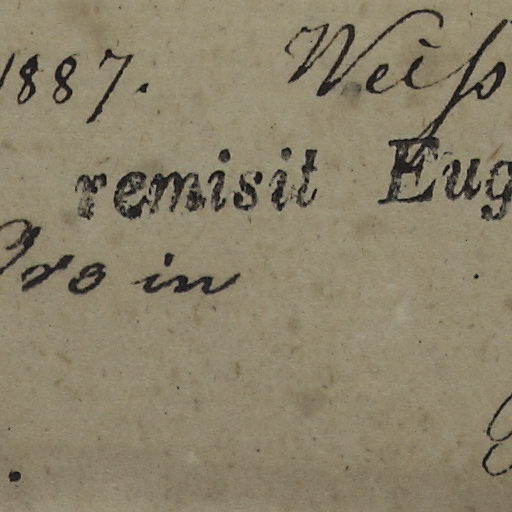 1887. Weiß
remisit Eug
Pro in
.